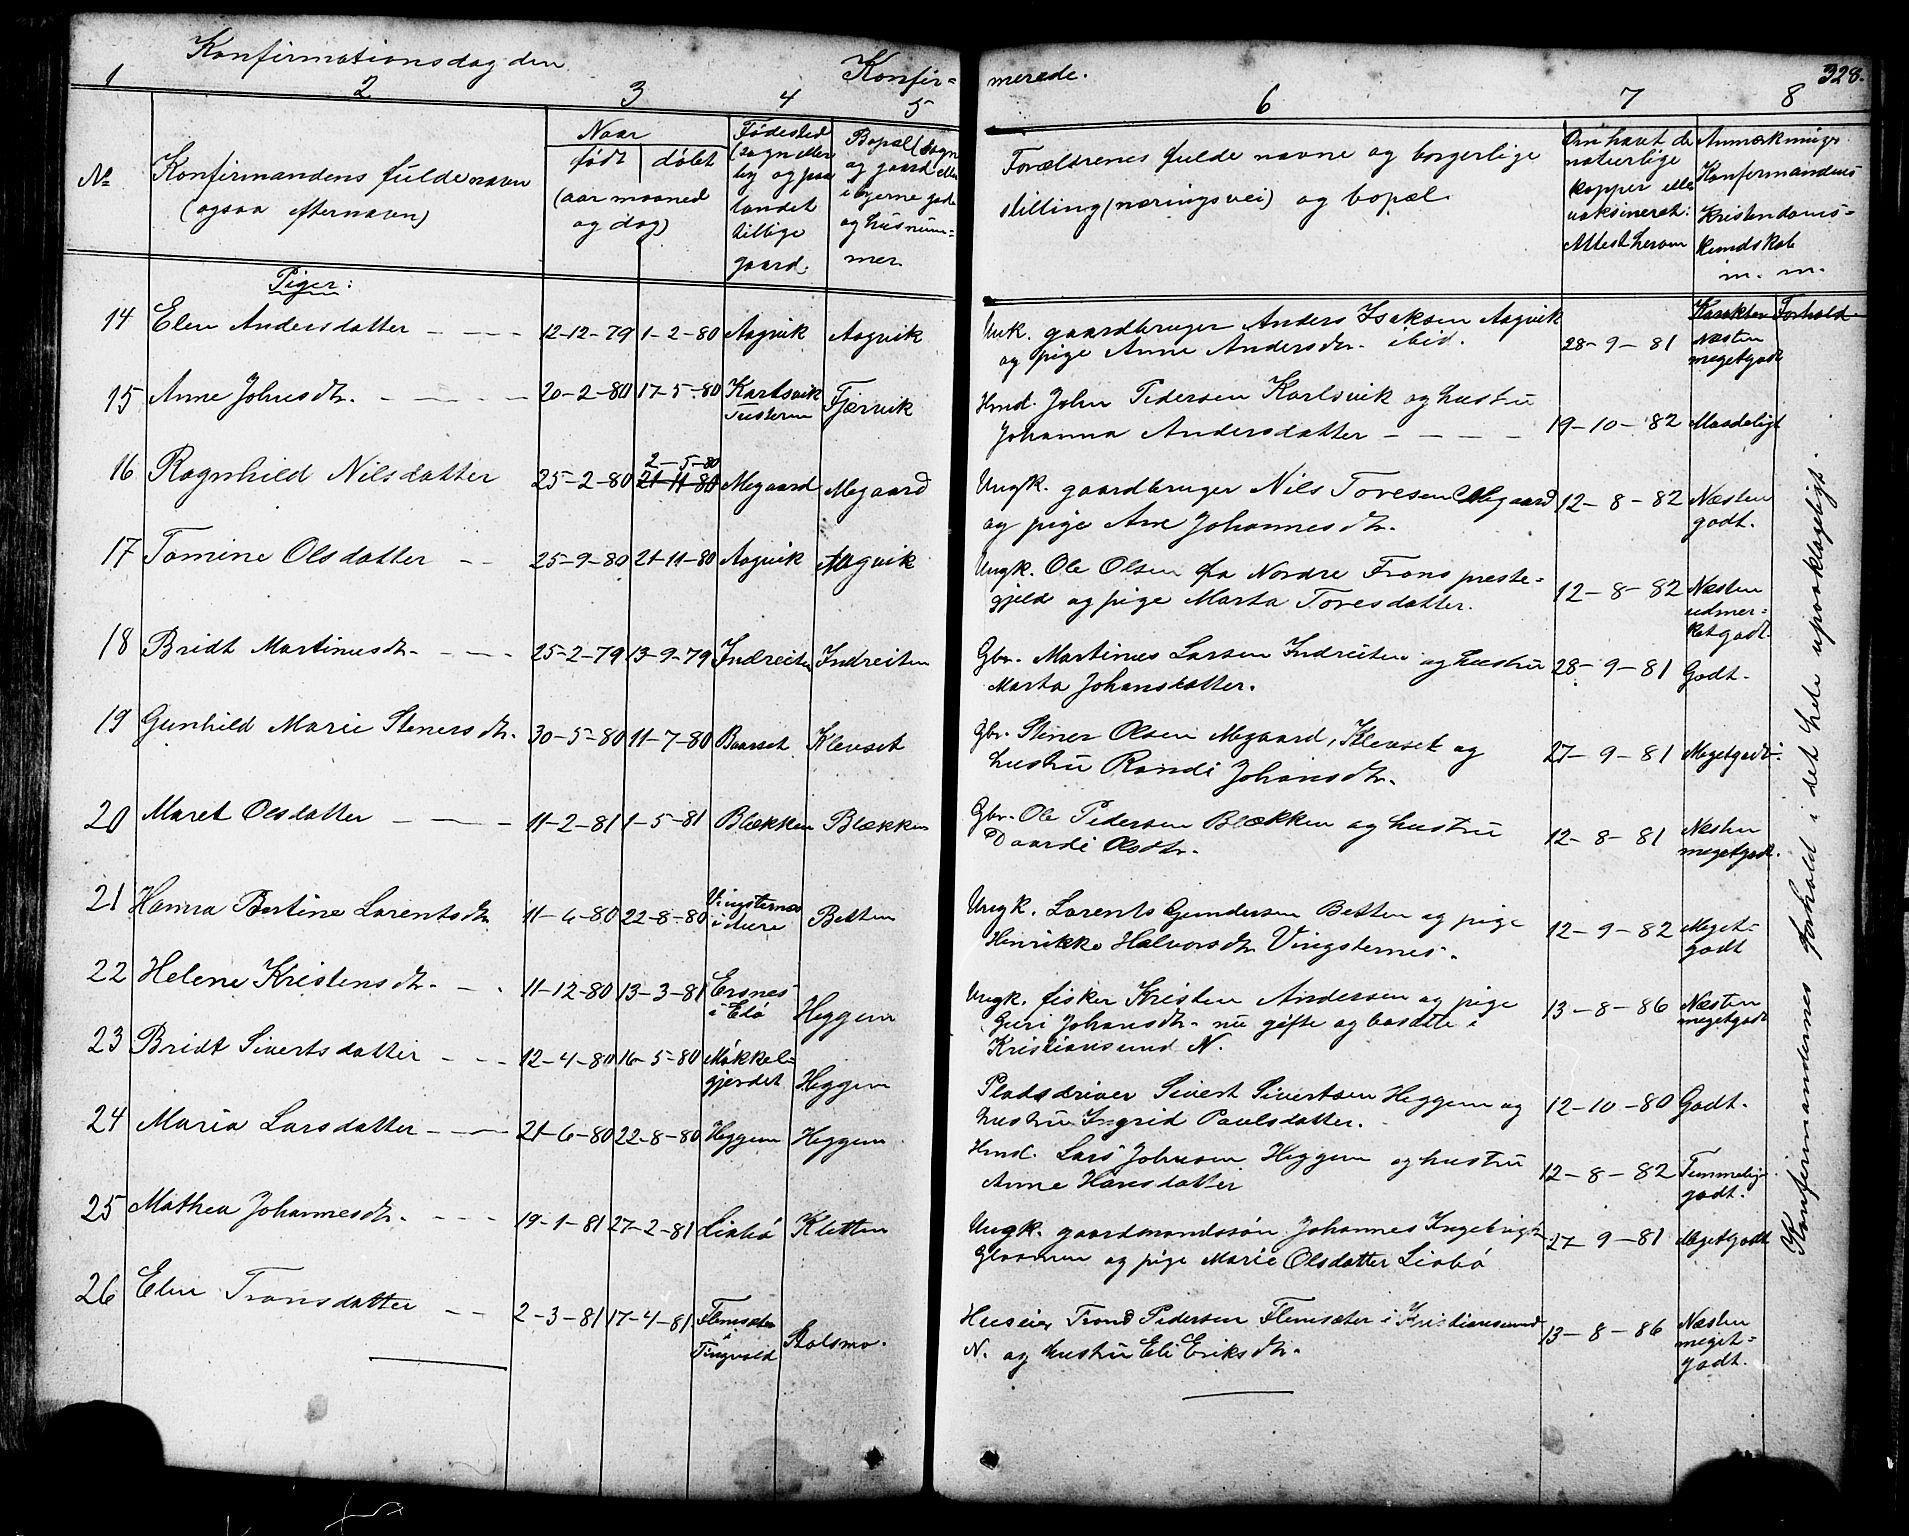 Konfirmationsdag den
Konfir=
merede.
328.
1 2 3 4 5 6 7 8
№
Konfirmandens fulde navn
(ogsaa efternavn)
Naar
født døbt
(aar maaned
og dag)
Fødested
(sogn eller
by og paa
landet
tillige
gaard.
Bopæl (sogn
og gaard eller
i byerne gade
og husnum=
mer.
Forældrenes fulde navne og borgerlige
stilling (næringsvei) og bopæl.
Om havt de
naturlige
kopper eller
vaksineret:
Attest herom
Anmerkninger
Konfirmandens
Kristendoms=
kundskab
m. m.
Piger:
Karakter Forhold.
14 Elen Andersdatter 12-12-79 1-2-80 Aagvik Aagvik
Unk. gaardbruger Anders Isaksen Aagvik
og pige Anne Andersdtr. ibid.
28-9-81 Næsten
megetgodt
15 Anne Johnsdtr. 20-2-80 17-5-80 Karlsvik
Tusteren
Fjærvik
Hmd. John Pedersen Karlsvik og hustru
Johanna Andersdatter
19-10-82 Maadeligt
16 Ragnhild Nilsdatter 25-2-80 2-5-80
21-11-80
Megaard Megaard
Ungk. gaardbruger Nils Toresen Megaard
og pige Ane Johannesdtr.
12-8-82 Næsten
godt.
17 Tomine Olsdatter 25-9-80 21-11-80 Aagvik Aagvik
Ungk. Ole Olsen fra Nordre Frons preste=
gjeld og pige Marta Toresdatter.
12-8-82 Næsten
udmer=
ketgodt.
18 Bridt Martinusdtr. 25-2-79 13-9-79 Indreiten Indreiten
Gbr. Martinus Larsen Indreiten og hustru
Marta Johansdatter.
28-9-81 Godt.
19 Gunhild Marie Stenersdtr. 30-5-80 11-7-80 Baarset Klevset
Gbr. Stener Olsen Megaard, Klevset og
hustru Randi Johansdtr.
27-9-81 Megetgodt.
20 Maret Olsdatter 11-2-81 1-5-81 Blækken Blækken
Gbr. Ole Pedersen Blækken og hustru
Daardi Olsdtr.
12-8-81 Næsten
megetgodt.
21 Hanna Bertine Lorentsdtr. 11-6-80 22-8-80 Vingsternes
i Aure
Betten
Ungk. Lorents Gundersen Betten og pige
Henrikke Halvorsdtr. Vingsternes.
12-9-82 Meget=
godt
22 Helene Kristensdtr. 11-12-80 13-3-81 Ersnes
i Edø
Heggem
Ungk. fisker Kristen Andersen og pige
Guri Johansdtr. nu gifte og bosatte i
Kristiansund N.
13-8-86 Næsten
megetgodt
23 Bridt Sivertsdatter 12-4-80 16-5-80 Møkkel=
gjerdet
Heggem
Pladsdriver Sivert Sivertsen Heggem og
hustru Ingrid Paulsdatter.
12-10-80 Godt.
24 Maria Larsdatter 21-6-80 22-8-80 Heggem Heggem
Hmd. Lars Johnsen Heggem og hustru
Anne Hansdatter
12-8-82 Temmelig
godt.
25 Mathea Johannesdtr. 19-1-81 27-2-81 Liabø Kletten
Ungk. gaardmandssøn Johannes Ingebrigts
Glaamen og pige Marie Olsdatter Liabø
27-9-81 Megetgodt
26 Elen Tronsdatter 2-3-81 17-4-81 Flemsæter
i
Tingvold
Stolsmo.
Huseier Trond Pedersen Flemsæter i Kristiansund
N. og hustru Eli Eriksdtr.
13-8-86 Næsten
meget=
godt.
Konfirmandernes forhold i det hele upaaklageligt.